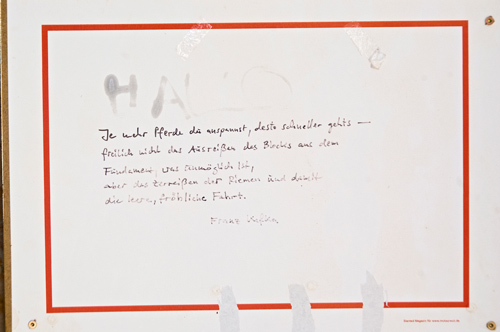 HALLO
Je mehr Pferde du anspannst, desto schneller gehts –
freilich nicht das Ausreißen des Blocks aus dem
Fundament, was unmöglich ist,
aber das Zerreißen der Riemen und damit
die leere, fröhliche Fahrt.
Franz Kafka